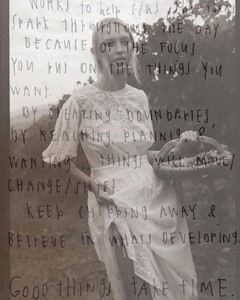 WORKS to help
SPARK THROUGHOUT THE DAY
BECAUSE OF THE FOCUS
YOU PUT ON THE THINGS YOU
WANT.
BY CREATING BOUNDARIES,
BY REACHING, PLANNING &
WANTING THINGS WILL MOVE/
CHANGE/SHIFT.
KEEP CHIPPING AWAY &
BELIEVE IN WHATS DEVELOPING.
GOOD THINGS TAKE TIME.